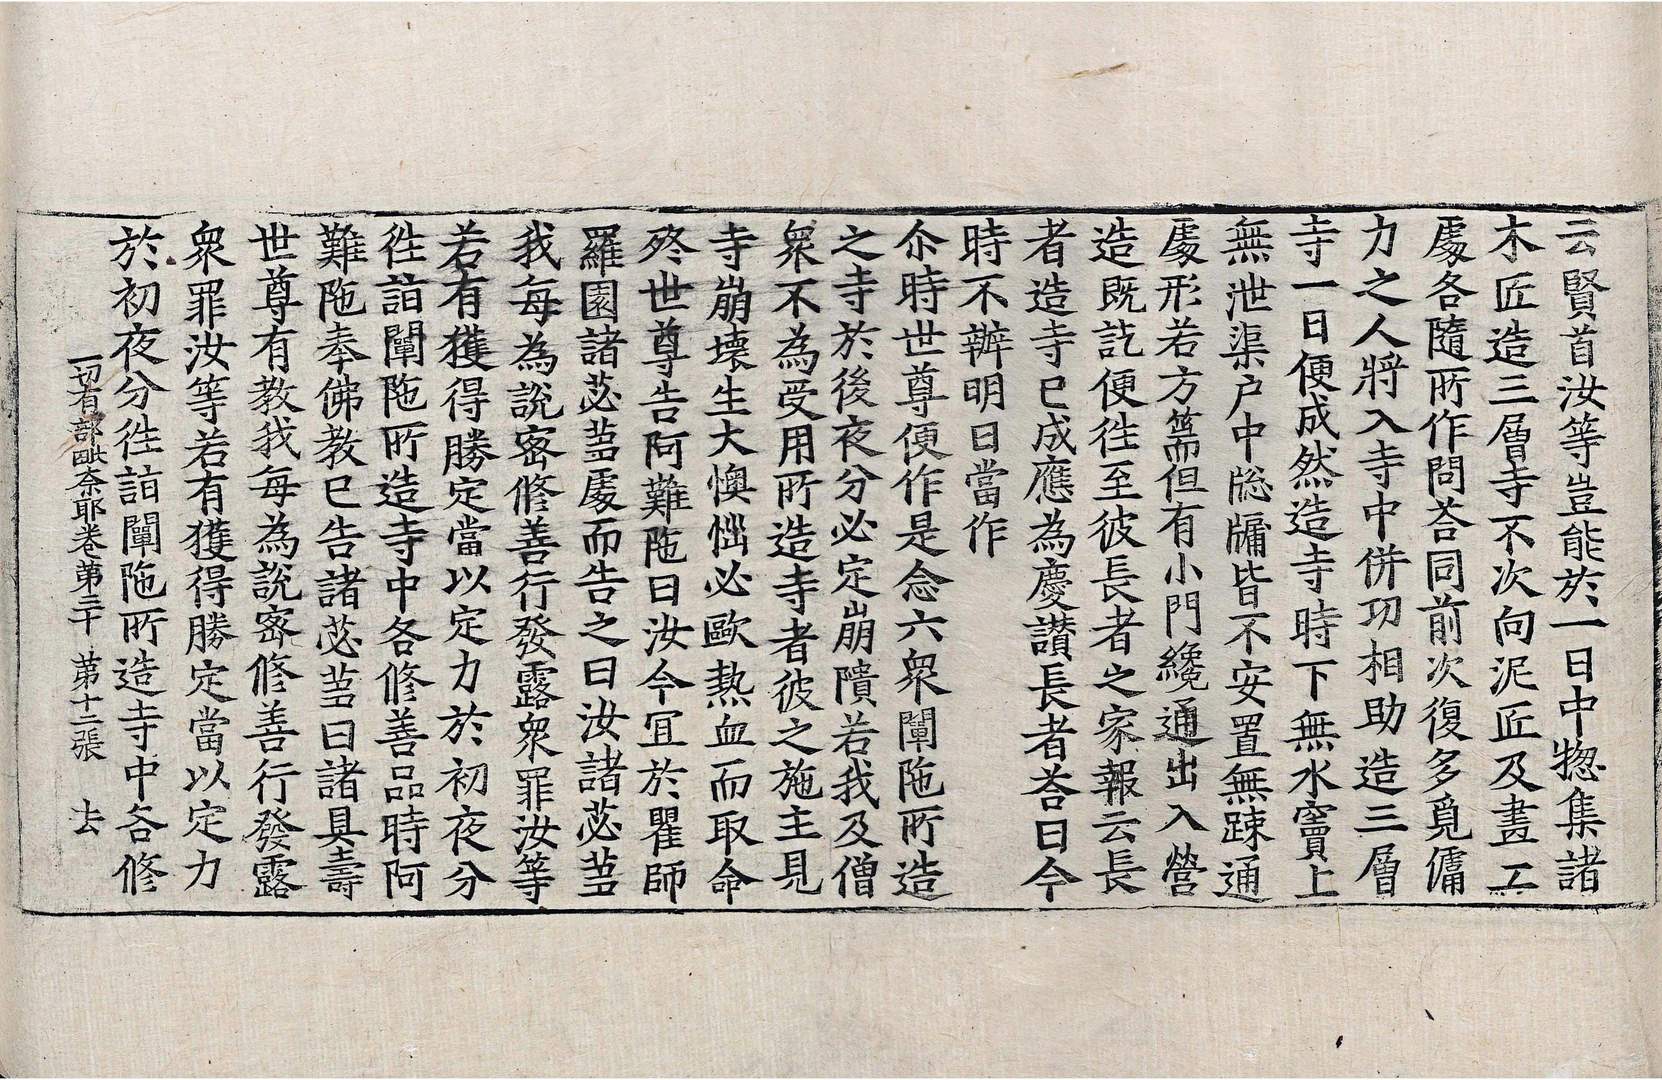 云賢首汝等豈能於一日中惣集諸
木匠造三層寺不次向泥匠及畫工
處各隨所作問荅同前次復多覓傭
力之人將入寺中併功相助造三層
寺一日便成然造寺時下無水竇上
無泄渠户中牎牖皆不安置無踈通
處形若方篅但有小門纔通出入營
造既訖便徃至彼長者之家報云長
者造寺已成應為慶讃長者荅曰今
時不辦明日當作
尒時世尊便作是念六衆闡陁所造
之寺於後夜分必定崩隤若我及僧
衆不為受用所造寺者彼之施主見
寺崩壞生大懊惱必歐熱血而取命
終世尊告阿難陁曰汝今宜於瞿師
羅園諸苾芻處而告之曰汝諸苾芻
我每為說密修善行發露衆罪汝等
若有獲得勝定當以定力於初夜分
徃詣闡陁所造寺中各修善品時阿
難陁奉佛教已告諸苾芻曰諸具壽
世尊有教我每為說密修善行發露
衆罪汝等若有獲得勝定當以定力
一切有部毗奈耶卷第三十 第十二張 去
於初夜分徃詣闡陁所造寺中各修